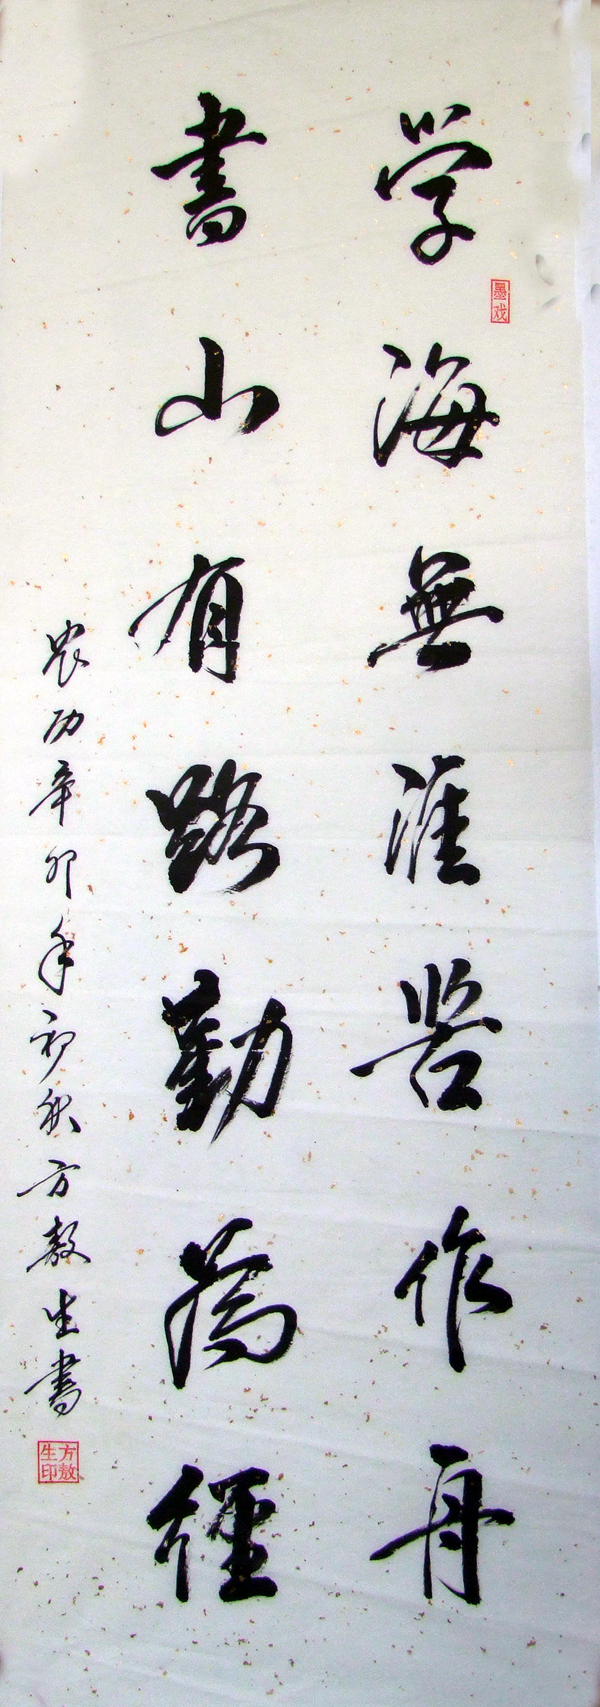 学海無涯苦作舟
墨戏
書山有路勤為經
农历辛卯年初秋方敖生書
方敖生印